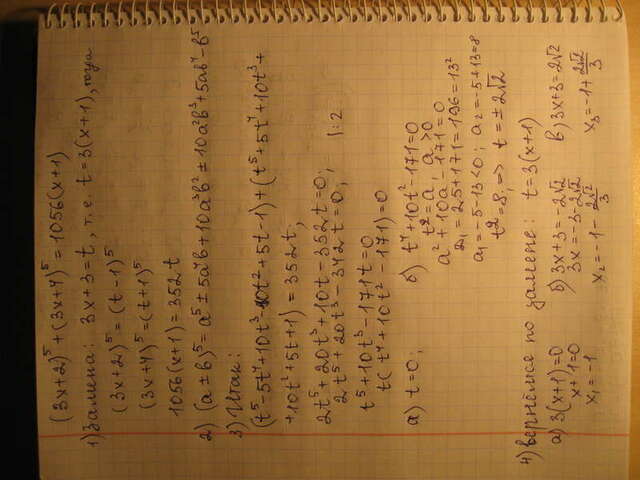 (3x+2)⁵+(3x+4)⁵=1056(x+1)
1) Замена: 3x+3=t, т.е. t=3(x+1), тогда
(3x+2)⁵=(t-1)⁵
(3x+4)⁵=(t+1)⁵
1056(x+1)=352t
2) (a±b)⁵=a⁵±5a⁴b+10a³b²±10a²b³+5ab⁴-b⁵
3) Итак:
(t⁵-5t⁴+10t³-10t²+5t-1)+(t⁵+5t⁴+10t³+
+10t²+5t+1)=352t;
2t⁵+20t³+10t-352t=0;
2t⁵+20t³-342t=0; |:2
t⁵+10t³-171t=0
t(t⁴+10t²-171)=0
а) t=0; б) t⁴+10t²-171=0
t²=a, a>0
a²+10a-171=0
D₁=25+171=196=13²
a₁=-5-13<0; a₂=-5+13=8
t²=8, => t=±2√2
4) вернёмся по замене: t=3(x+1)
а) 3(x+1)=0 б) 3x+3=-2√2 в) 3x+3=2√2
x+1=0 3x=-3-2√2
x₁=-1 x₂=-1-2√2/3 x₃=-1+2√2/3